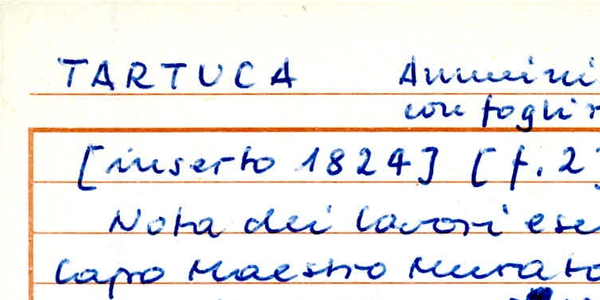 TARTUCA Ammini
con fogli r
[inserto 1824] [f.2]
Nota dei lavori ese
Capo Maestro Murato